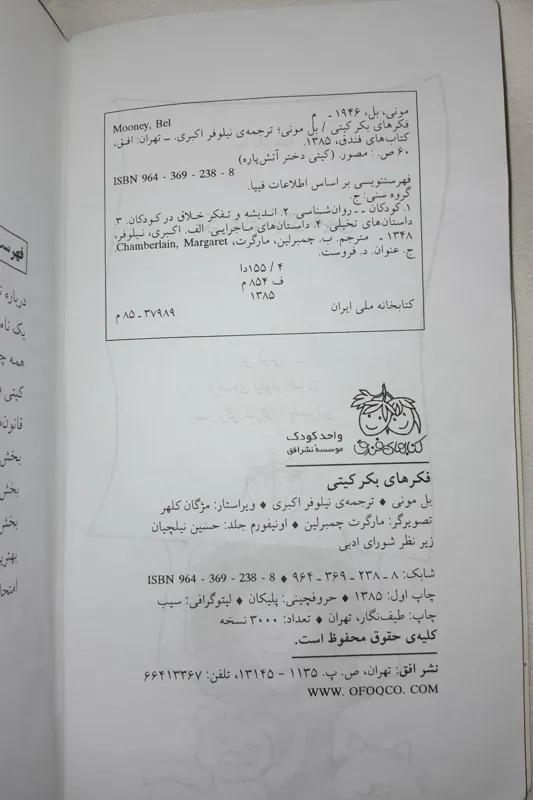 مونی، بل، ۱۹۴۶ - م
Mooney, Bel
فکرهای بکر کیتی / بل مونی؛ ترجمه‌ی نیلوفر اکبری. - تهران: افق،
کتاب‌های فندق، ۱۳۸۵.
۶۰ ص. : مصور. (کیتی دختر آتش‌پاره)
ISBN 964 - 369 - 238 - 8
فهرستنویسی بر اساس اطلاعات فیپا.
گروه سنی: ج.
۱. کودکان -- روان‌شناسی. ۲. اندیشه و تفکر خلاق در کودکان. ۳.
داستان‌های تخیلی. ۴. داستان‌های ماجرایی. الف. اکبری، نیلوفر،
۱۳۴۸ - مترجم. ب. چمبرلین، مارگرت، Chamberlain, Margaret.
ج. عنوان. د. فروست.
۴ / ۱۵۵دا
ف ۸۵۴ م
۱۳۸۵
کتابخانه ملی ایران
۳۷۹۸۹ـ ۸۵ م
کتابهای فندق
واحد کودک
موسسه نشر افق
فکرهای بکر کیتی
بل مونی ♦ ترجمه‌ی نیلوفر اکبری ♦ ویراستار: مژگان کلهر
تصویرگر: مارگرت چمبرلین ♦ اونیفورم جلد: حسین نیلچیان
زیر نظر شورای ادبی
شابک: ۸ ـ ۲۳۸ ـ ۳۶۹ ـ ۹۶۴ ♦ ISBN 964 - 369 - 238 - 8
چاپ اول: ۱۳۸۵ ♦ حروفچینی: پلیکان ♦ لیتوگرافی: سیب
چاپ: طیف‌نگار، تهران ♦ تعداد: ۳۰۰۰ نسخه
کلیه‌ی حقوق محفوظ است.
نشر افق: تهران، ص. پ. ۱۱۳۵ - ۱۳۱۴۵، تلفن: ۶۶۴۱۳۳۶۷
WWW. OFOQCO. COM
درباره
یک
همه
کیتی
بخش
بخش
بخش